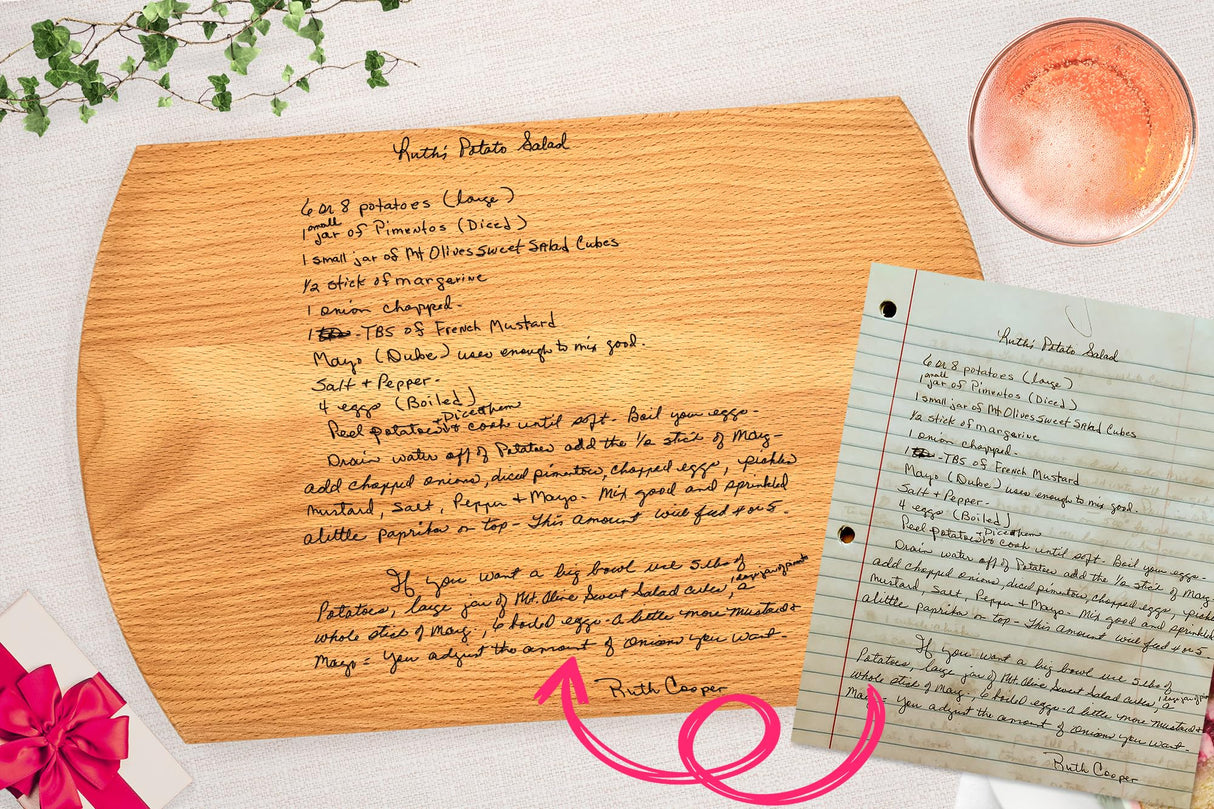 Ruth's Potato Salad
6 or 8 potatoes (large)
small
1 jar of Pimentos (Diced)
1 small jar of Mt Olives Sweet Salad Cubes
1/2 stick of margarine
1 onion chopped.
1 - TBS of French Mustard
Mayo (Duke) uses enough to mix good.
Salt + Pepper -
4 eggs (Boiled)
+ Dice them
Peel potatoes + cook until soft. Boil your eggs -
Drain water off of Potatoes add the 1/2 stick of Marg -
add chopped onions, diced pimentos, chopped eggs, pickles
mustard, Salt, Pepper + Mayo - Mix good and sprinkled
alittle paprika on top - This amount will feed 4 or 5.
If you want a big bowl use 5 lbs of
Potatoes, large jar of Mt. Olive Sweet Salad cubes, 1 large jar of pimento a
whole stick of Marg., 6 boiled eggs - a little more mustard +
Mayo = You adjust the amount of onions you want -
Ruth Cooper
Ruth's Potato Salad
6 or 8 potatoes (large)
small
1 jar of Pimentos (Diced)
1 small jar of Mt Olives Sweet Salad Cubes
1/2 stick of margarine
1 onion chopped.
1 - TBS of French Mustard
Mayo (Duke) uses enough to mix good.
Salt + Pepper -
4 eggs (Boiled)
+ Dice them
Peel potatoes + cook until soft. Boil your eggs -
Drain water off of Potatoes add the 1/2 stick of Marg
add chopped onions, diced pimentos, chopped eggs,
mustard, Salt, Pepper + Mayo - Mix good and sprinkled
alittle paprika on top - This amount will feed 4 or 5
If you want a big bowl use 5 lbs of
Potatoes, large jar of Mt. Olive Sweet Salad cubes, 1 large jar of a
whole stick of Marg, 6 boiled eggs - a little more mustard +
Mayo = You adjust the amount of onions you want -
Ruth Cooper